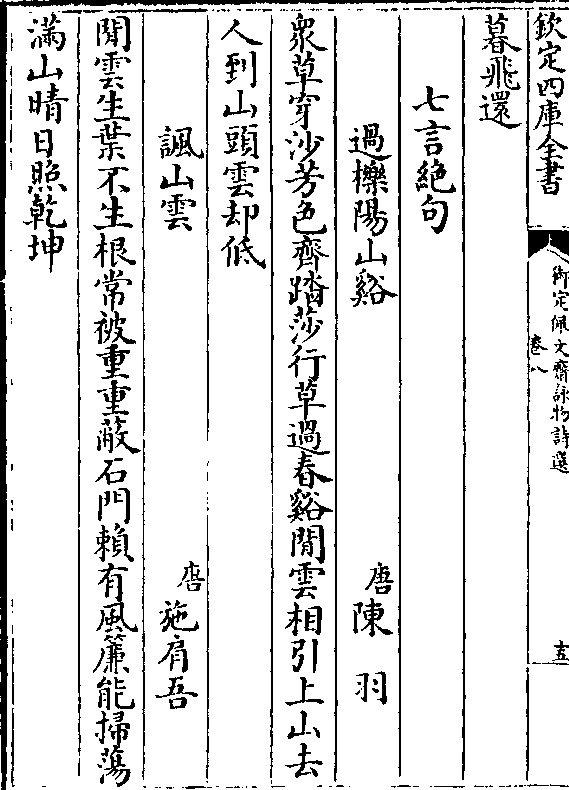 欽定四庫全書
御定佩文齋詠物詩選
卷八
十五
暮飛還
七言絕句
過櫟陽山谿 唐 陳羽
衆草穿沙芳色齊踏莎行草過春谿閒雲相引上山去
人到山頭雲却低
諷山雲 唐 施肩吾
閒雲生葉不生根常被重重蔽石門賴有風簾能掃蕩
滿山晴日照乾坤